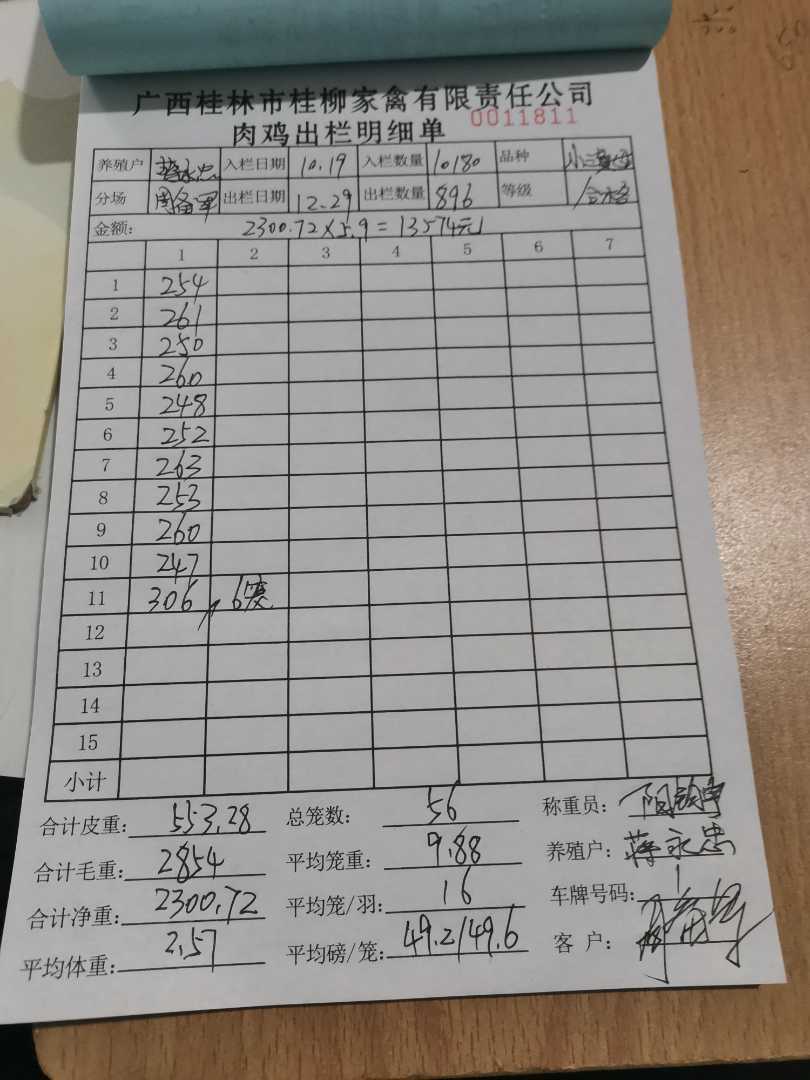 广西桂林市桂柳家禽有限责任公司
肉鸡出栏明细单 0011811
养殖户 蒋永忠 入栏日期 10.19 入栏数量 10180 品种
分场 出栏日期 12.29 出栏数量 896 等级 合格
金额： 2300.72×5.9=13574元
1 2 3 4 5 6 7
1 254
2 261
3 250
4 260
5 248
6 252
7 263
8 253
9 260
10 247
11 306 6笼
12
13
14
15
小计
合计皮重： 553.28 总笼数： 56 称重员：
合计毛重： 2854 平均笼重： 9.88 养殖户： 蒋永忠
合计净重： 2300.72 平均笼/羽： 16 车牌号码：
平均体重： 2.57 平均磅/笼： 49.2/49.6 客 户：